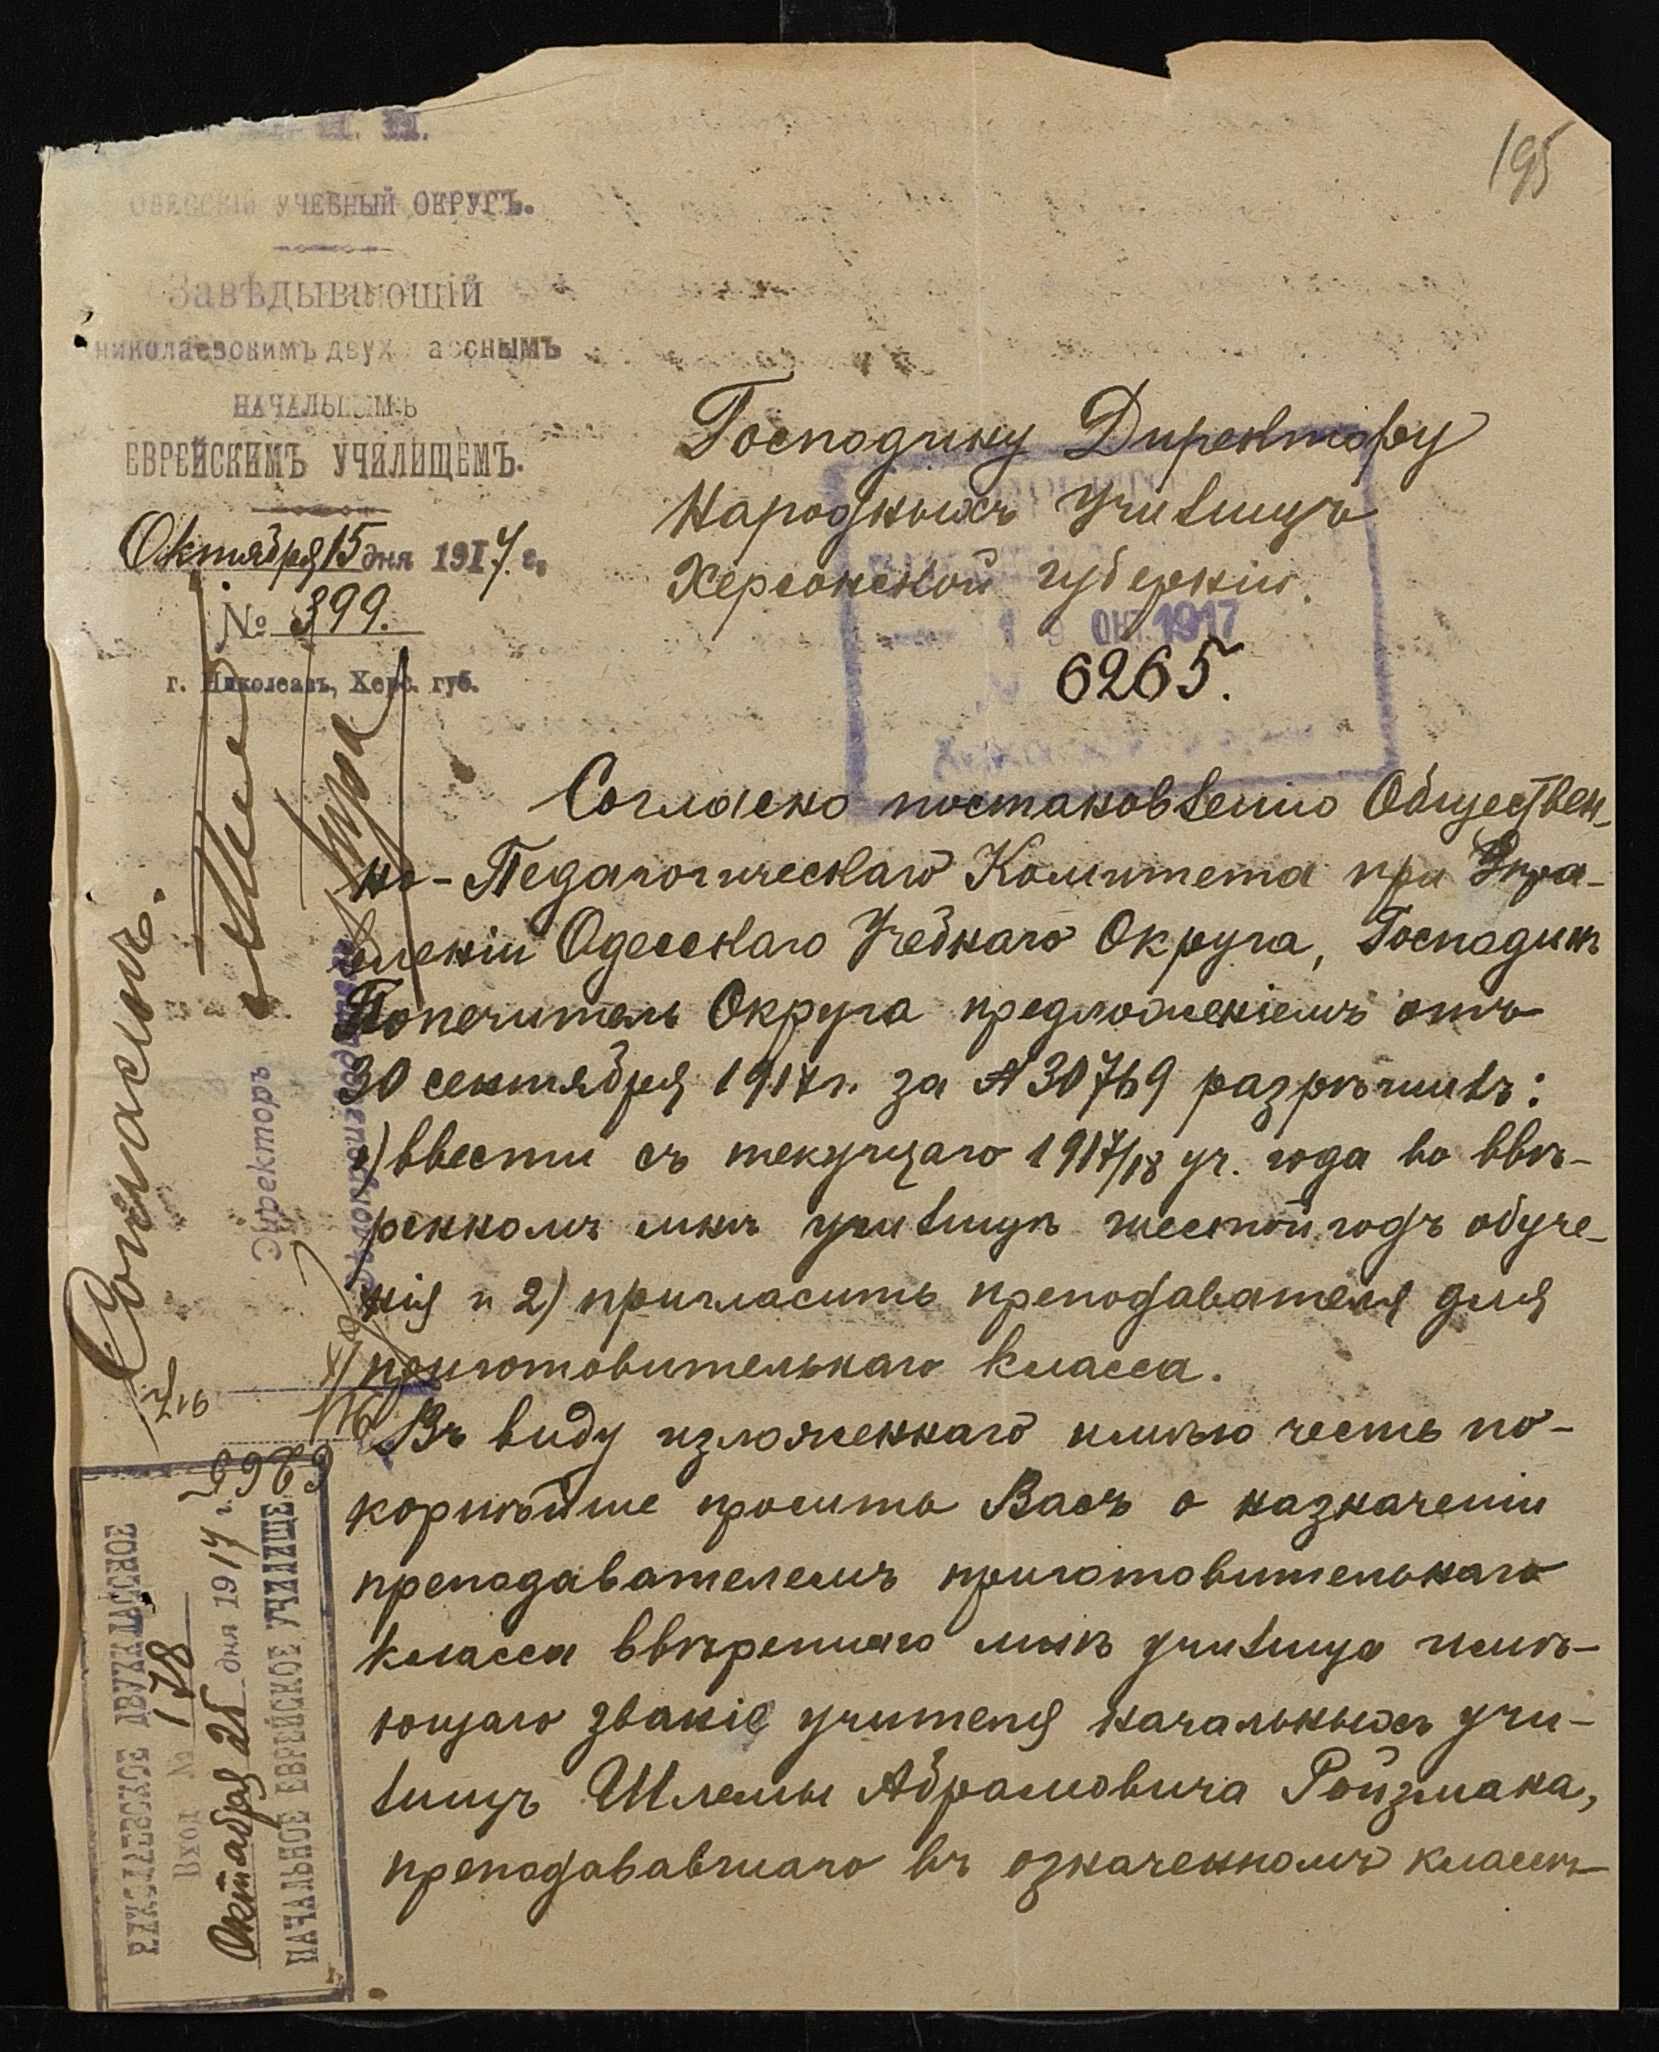 195
М. Н. П.
ОДЕССКІЙ УЧЕБНЫЙ ОКРУГЪ.
Завѣдывающій
николаевскимъ двухкласснымъ
НАЧАЛЬНЫМЪ
ЕВРЕЙСКИМЪ УЧИЛИЩЕМЪ.
Октября 15 дня 1917 г.
№ 399.
г. Николаевъ, Херс. губ.
Господину Директору
Народныхъ Училищъ
Херсонской губерніи.
19 ОКТ 1917
6265.
Согласно постановленію Обществен-
но-Педагогическаго Комитета при Упра-
вленіи Одесскаго Учебнаго Округа, Господинъ
Попечитель Округа предложеніемъ отъ
30 сентября 1917 г. за № 30769 разрѣшилъ:
1) ввести съ текущаго 1917/18 уч. года во ввѣ-
ренномъ мнѣ училищѣ шестой годъ обуче-
нія и 2) пригласить преподавателя для
приготовительнаго класса.
Въ виду изложеннаго имѣю честь по-
корнѣйше просить Васъ о назначеніи
преподавателемъ приготовительнаго
класса ввѣреннаго мнѣ училища имѣ-
ющаго званіе учителя начальныхъ учи-
лищъ Шлемы Абрамовича Ройзмана,
преподававшаго въ означенномъ классѣ
Согласенъ.
Директоръ
6265
НИКОЛАЕВСКОЕ ДВУХКЛАССНОЕ
Вход № 178
Октября 25 дня 1917 г.
НАЧАЛЬНОЕ ЕВРЕЙСКОЕ УЧИЛИЩЕ